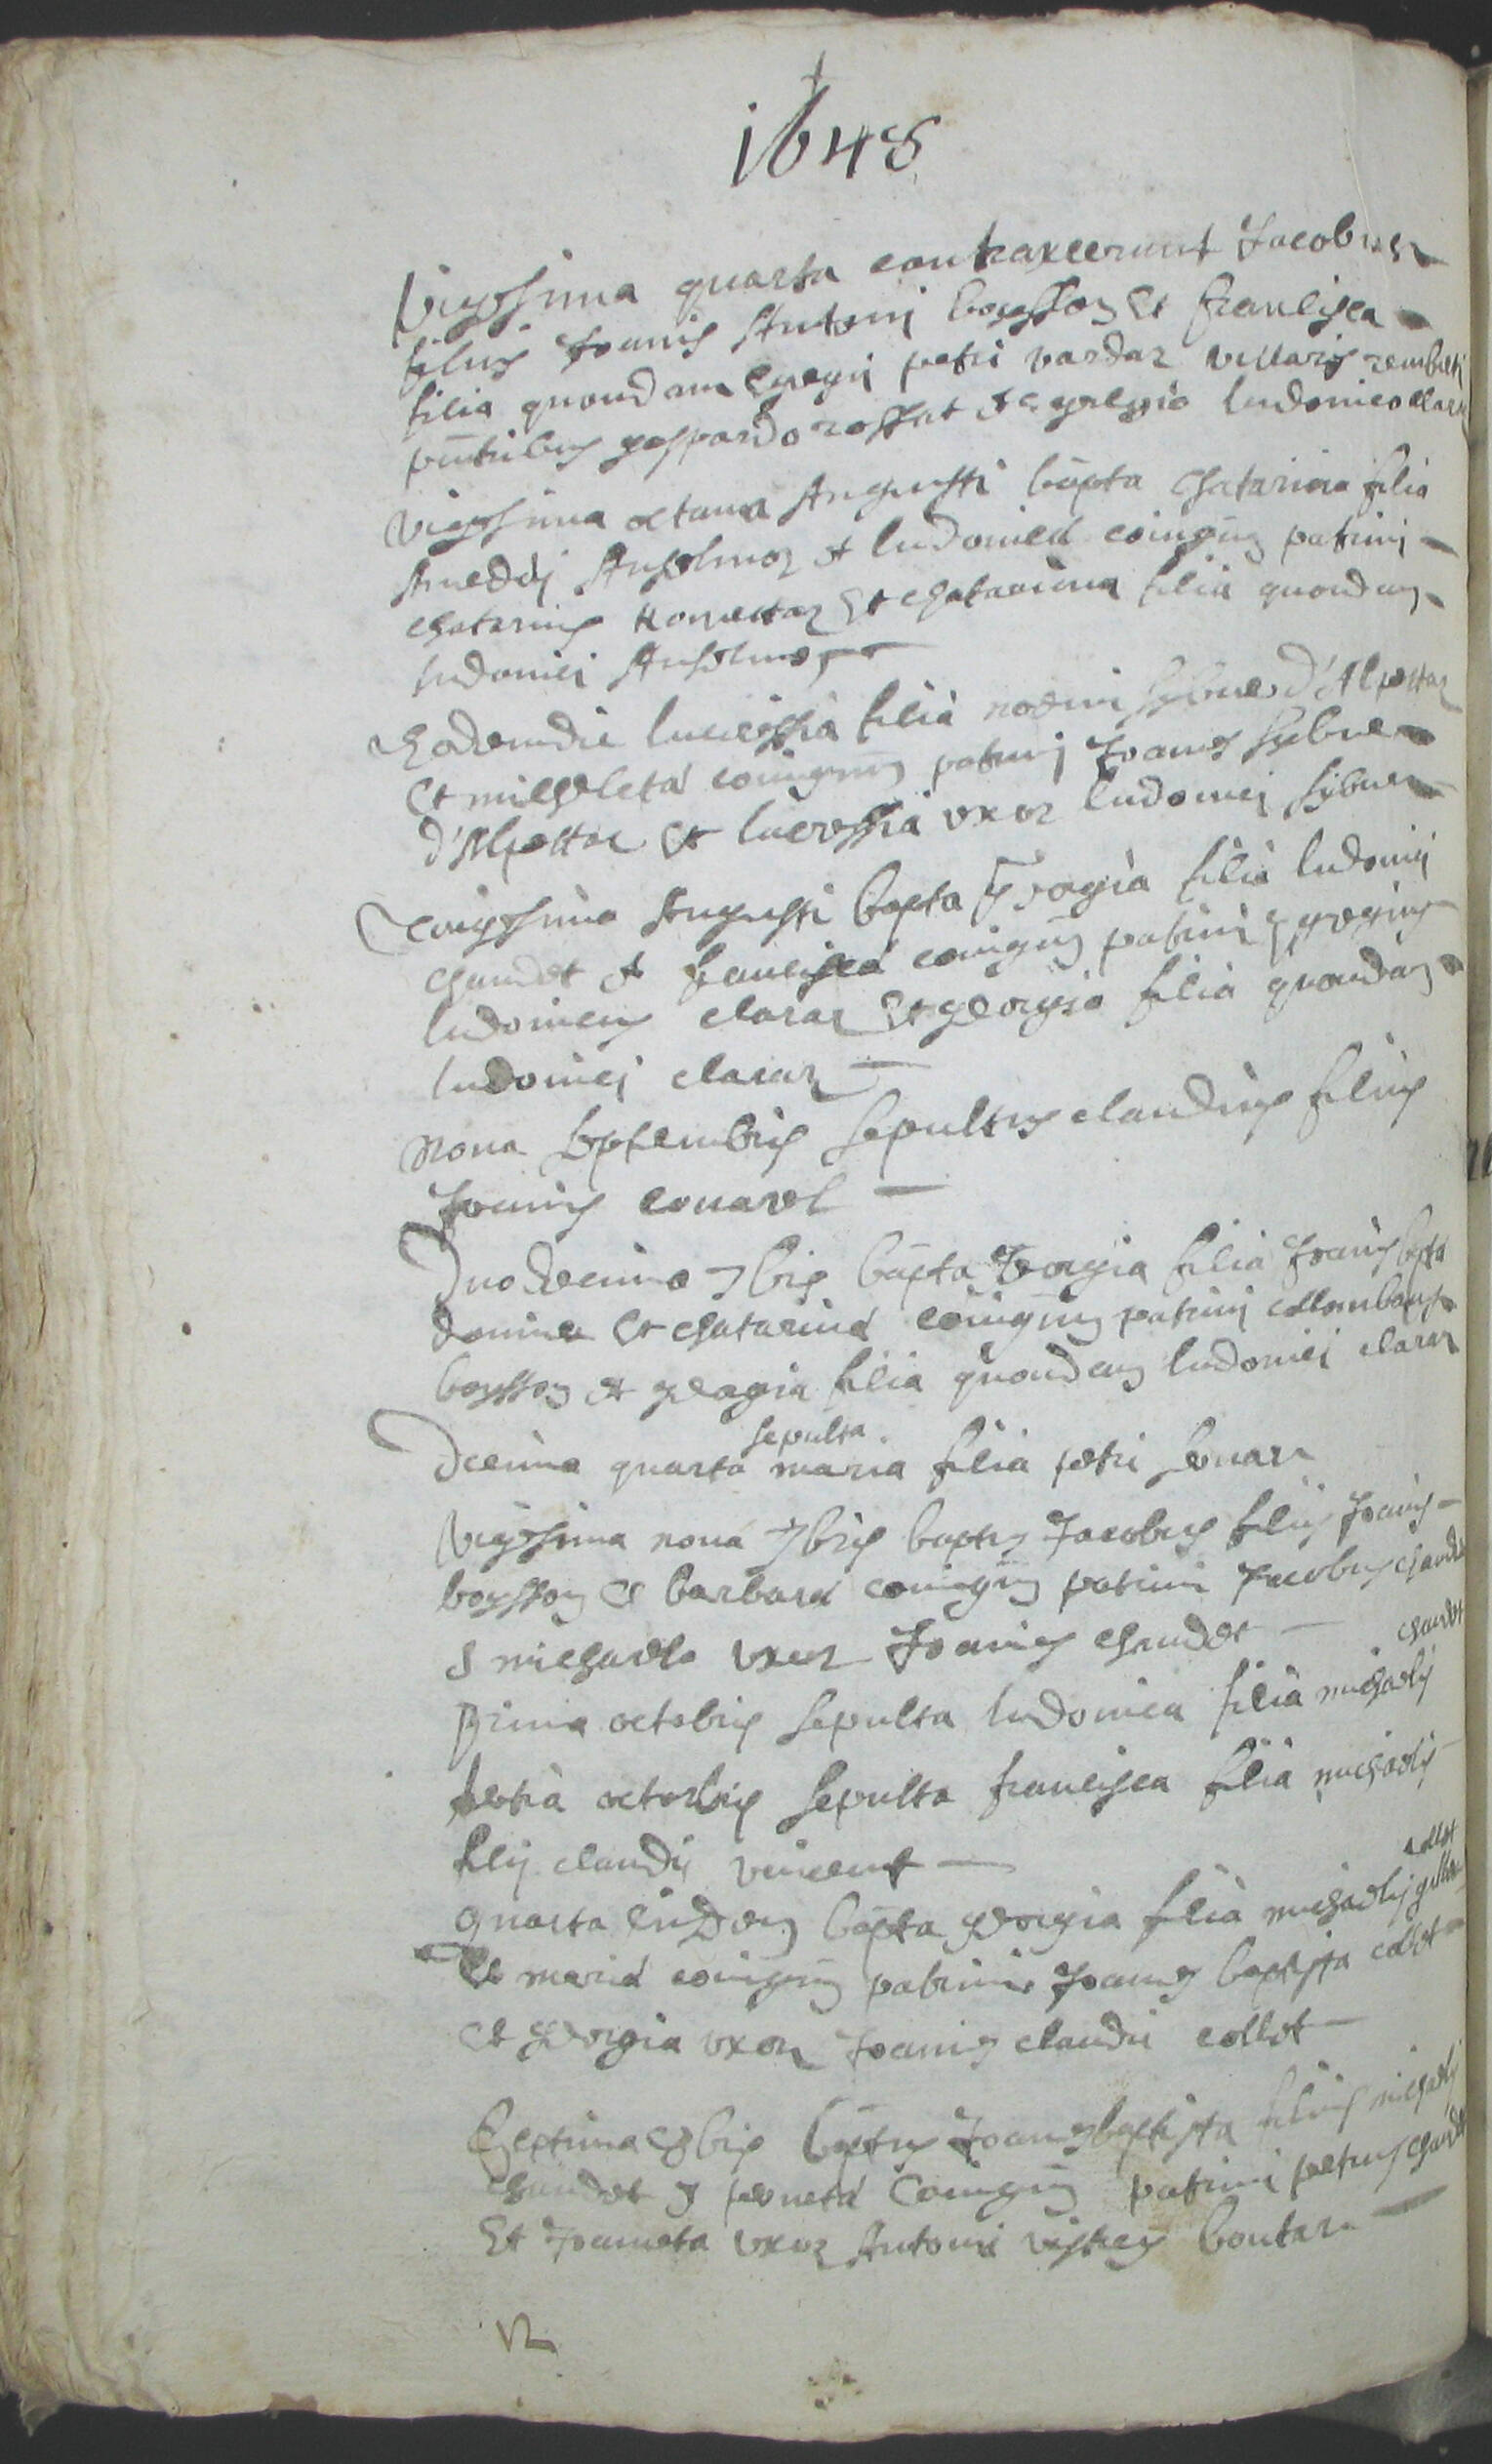 1648
Vigessima quarta contraxerunt Jacobus
filius Joanis Antonij boysson Et francisca
filia quondam Egregij petri vardaz villarij
pñtibus gaspardo rossat & egregio ludovico claraz
vigessima octava Augusti bapta Chatarina filia
Amedei Anselmoz & ludovica coniugum patrini
Chatarinus Et Chatarina filia quondam
ludovici Anselmoz
Eademdie lucressia filia nodini sybue d'Alpettaz
Et micheleta coniugum patrini Joanes sybue
d'Alpettaz Et lucressia uxor ludovici sybue
Trigessima Augusti bapta Georgia filia ludovici
chaudet & francisca coniugum patrini Egregius
ludovicus claraz Et georgia filia quondam
ludovici claraz
Nona Septembris sepultus claudius filius
Joanis
Duodecima 7bris bapta Georgia filia Joanis bapta
domine Et Chatarina coniugum patrini collombanus
boysson & georgia filia quondam ludovici claraz
sepulta
Decima quarta maria filia petri
Vigessima nona 7bris baptus Jacobus filius Joanis
boysson & barbara coniugum patrini Jacobus chaudet
& michaela uxor Joanis chaudet
chaudet
Prima octobris sepulta ludovica filia michaelis
tertia octobris sepulta francisca filia michaelis
filij claudij vincent
collet
quarta eiusdem bapta georgia filia michaelis
Et maria coniugum patrini Joanes baptista collet
Et georgia uxor Joanis claudii collet
Septima 8bris baptus Joanesbaptista filius michaelis
chaudet & perneta Coniugum patrini petrus chaudet
Et Joaneta uxor Antonii